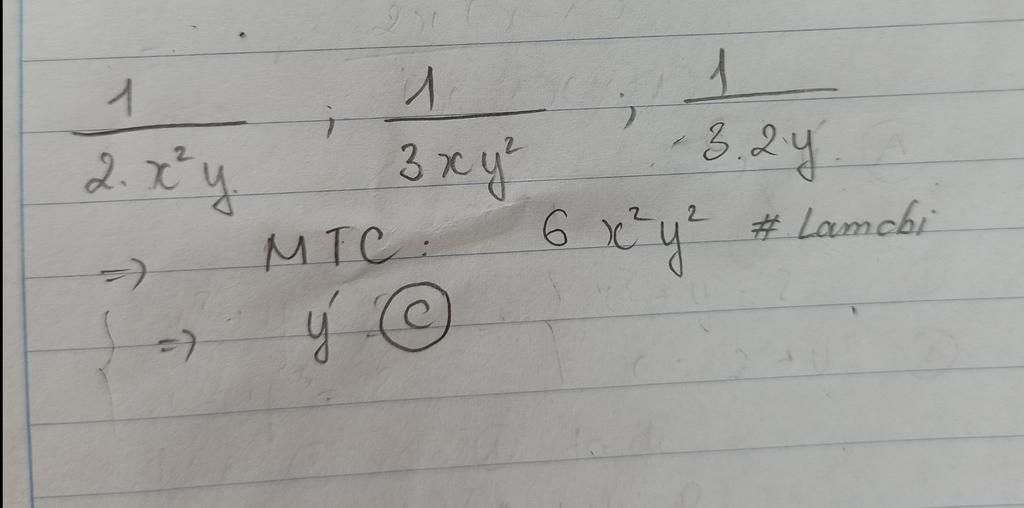 1/2.x²y ; 1/3xy² ; 1/3.2.y
=> MTC : 6 x²y² # Lamchi
} => ý Ⓒ